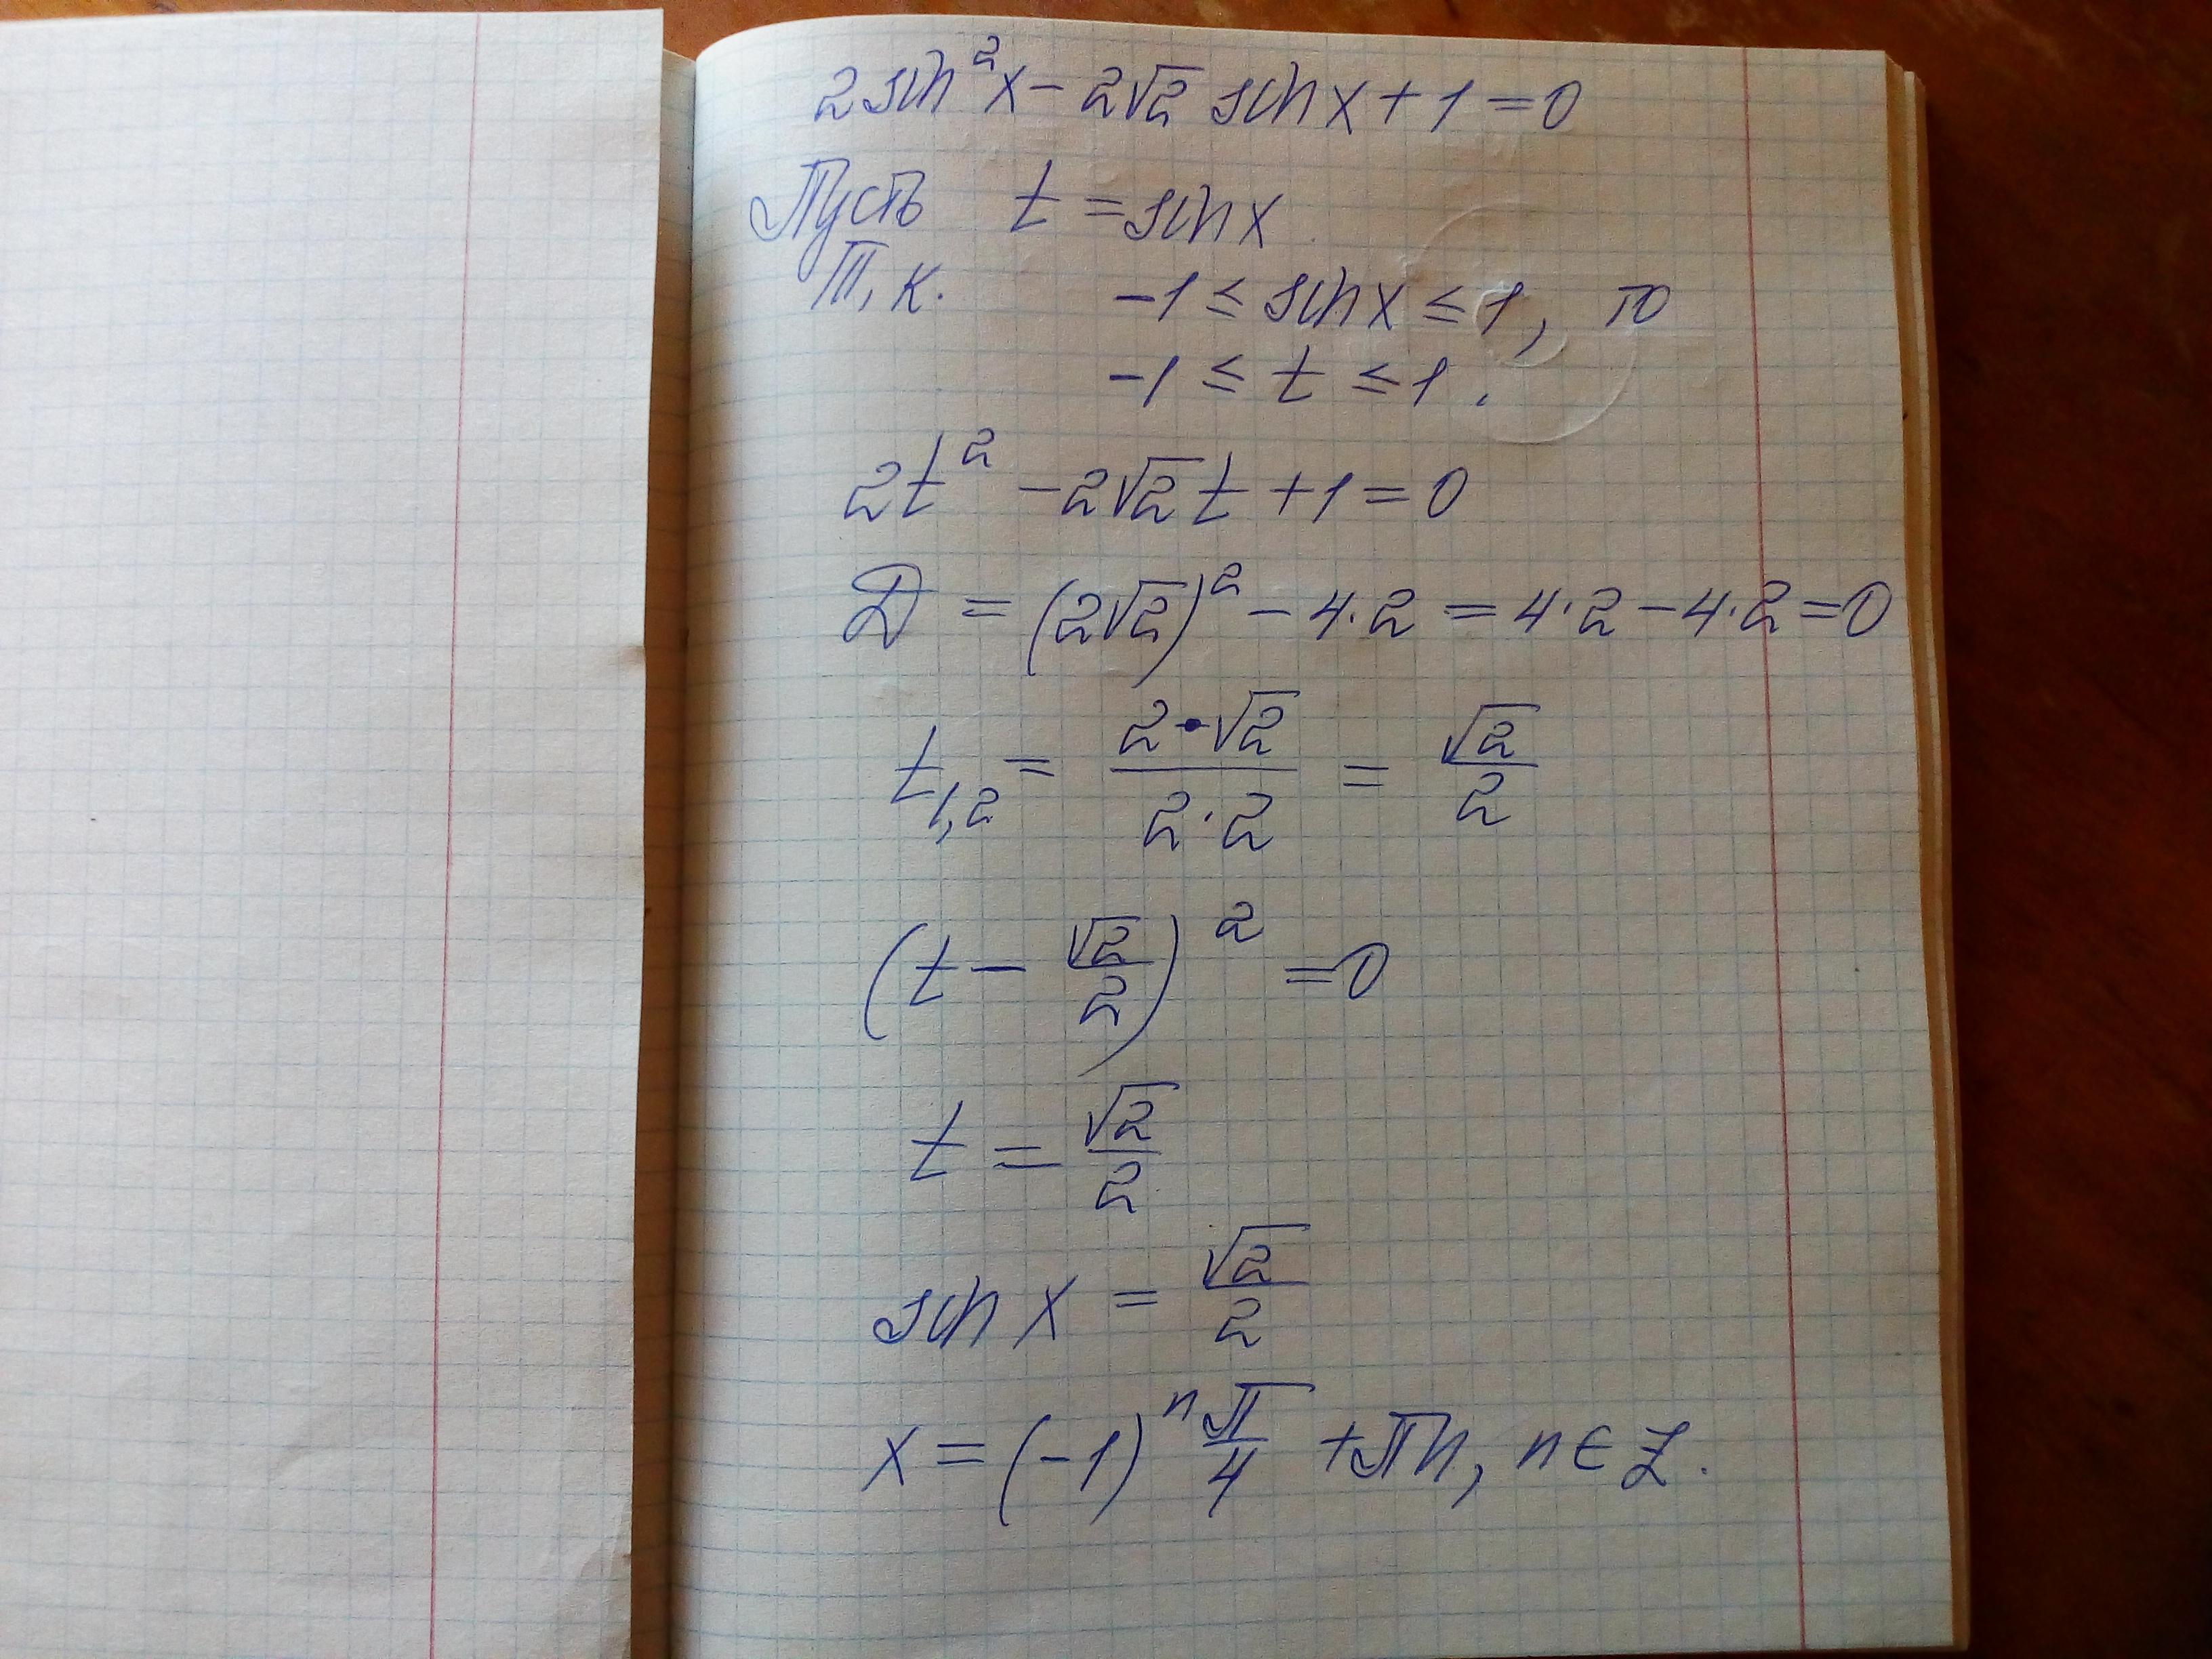 2 sin²x - 2√2 sin x + 1 = 0
Пусть t = sin x
Т, к. -1 ≤ sin x ≤ 1, то
-1 ≤ t ≤ 1.
2t² - 2√2 t + 1 = 0
D = (2√2)² - 4·2 = 4·2 - 4·2 = 0
t₁,₂ = (2·√2)/(2·2) = √2/2
(t - √2/2)² = 0
t = √2/2
sin x = √2/2
x = (-1)ⁿ π/4 + πn, n ∈ Z.